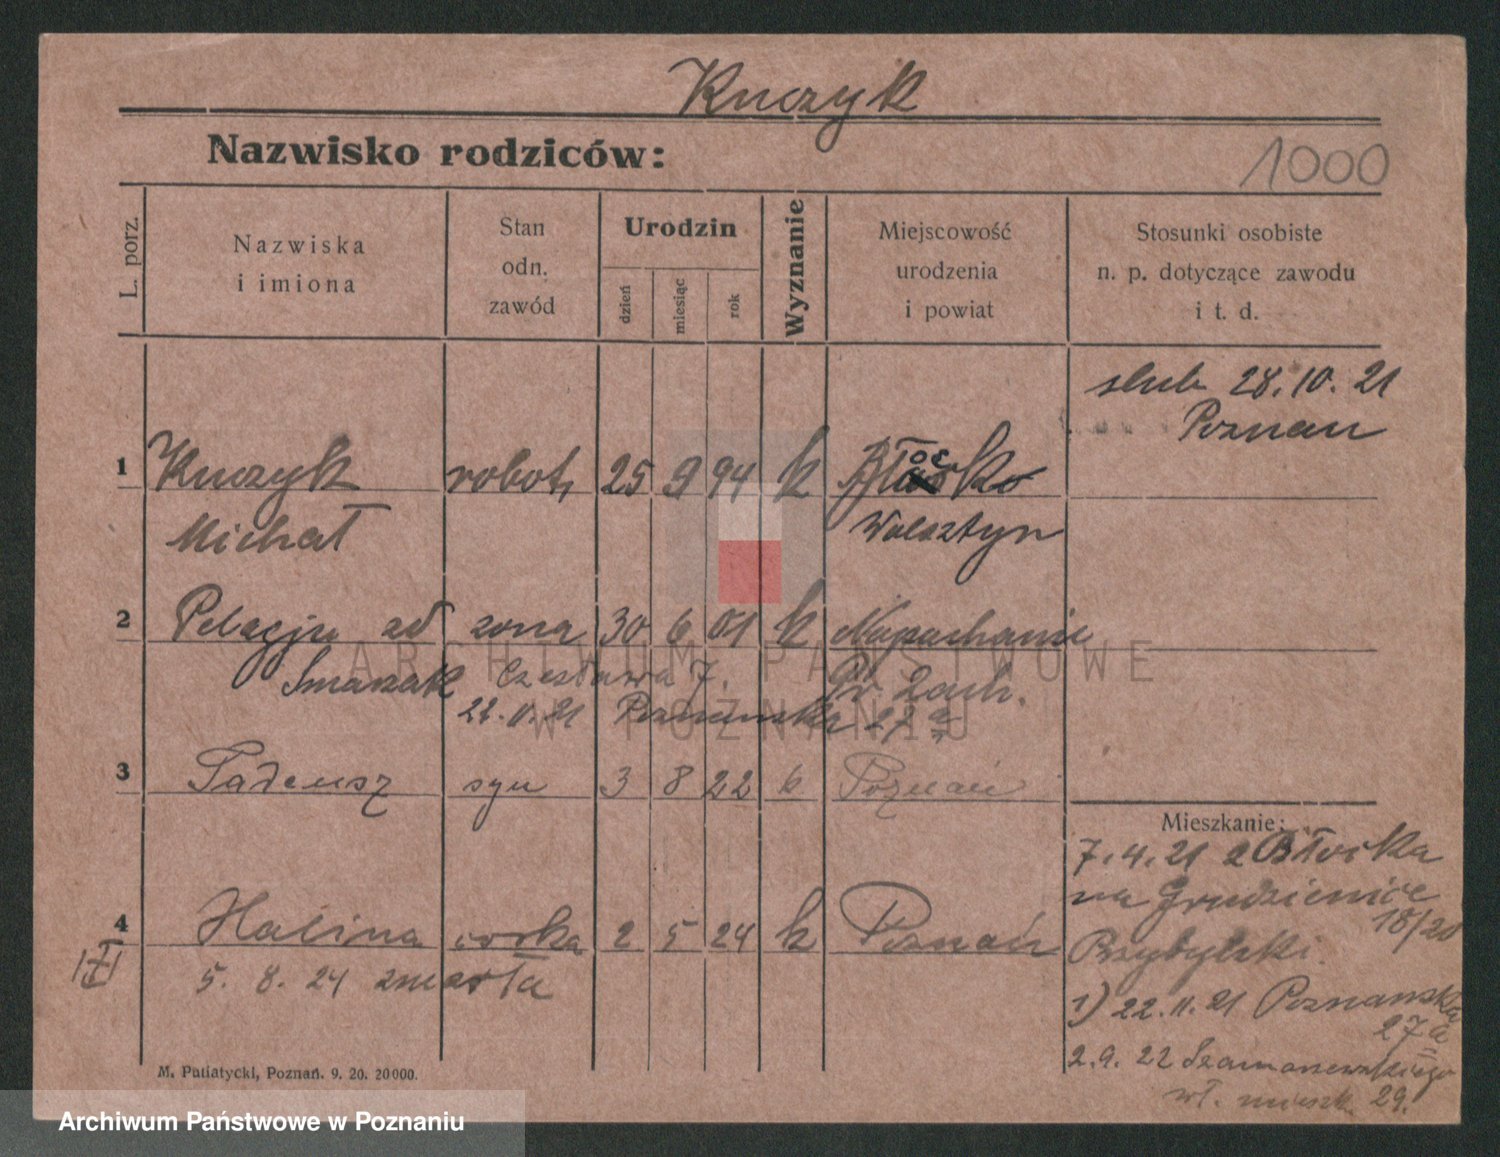 Kuczyk
Nazwisko rodziców:
1000
L. porz.
Nazwiska
i imiona
Stan
odn.
zawód
Urodzin
dzień
miesiąc
rok
Wyznanie
Miejscowość
urodzenia
i powiat
Stosunki osobiste
n. p. dotyczące zawodu
i t. d.
slub 28.10.21
Poznan
1 Kuczyk robot. 25 9 94 k
Michał Wolsztyn
2 Pelagja zd zona 30 6 01 k Napachanie
Smazak Czesława 7. Pr. Zach.
22.11.21 Poznanska 27a
3 Tadeusz syn 3 8 22 k Poznań
Mieszkanie:
7.4.21 z Błocka
na Grudzieniec
18/20
Przybylski.
4 Halina córka 2 5 24 k Poznań
5. 8. 24 zmarła
1) 22.11.21 Poznanska
27a
2.9.22 Szamarzewskiego
wł. mieszk. 29.
M. Putiatycki, Poznań. 9. 20. 20000.
ARCHIWUM PAŃSTWOWE
W POZNANIU
Archiwum Państwowe w Poznaniu